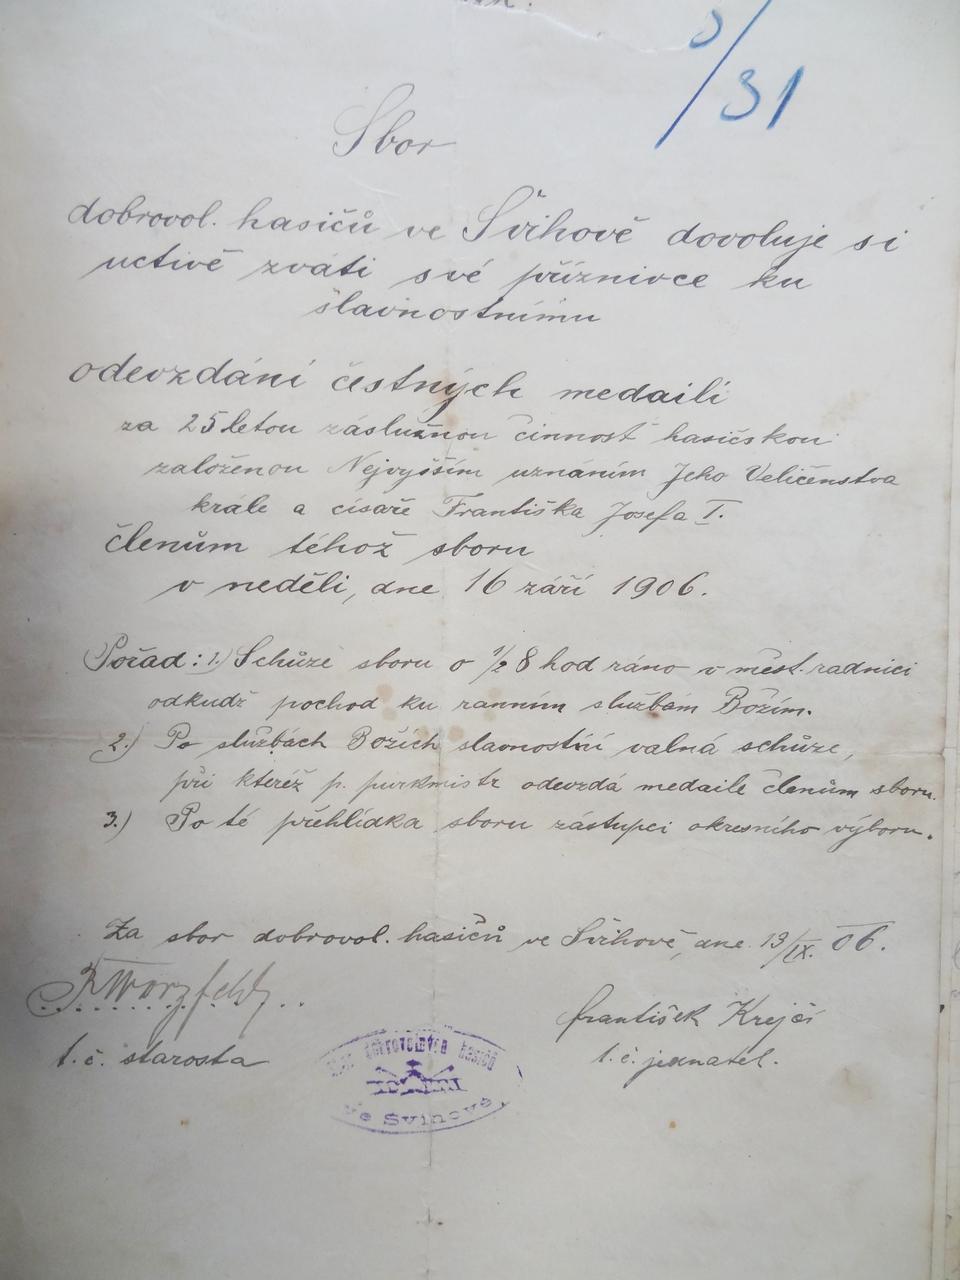 /31
Sbor
dobrovol. hasičů ve Švihově dovoluje si
uctivě zváti své příznivce ku
slavnostnímu
odevzdání čestných medailí
za 25letou záslužnou činnost hasičskou
založenou Nejvyšším uznáním Jeho Veličenstva
krále a císaře Františka Josefa I.
členům téhož sboru
v neděli, dne 16 září 1906.
Pořad: 1.) Schůze sboru o 1/2 8 hod ráno v měst. radnici
odkudž pochod ku ranním službám Božím.
2.) Po službách Božích slavnostní valná schůze,
při kteréž p. purkmistr odevzdá medaile členům sboru.
3.) Po té přehlídka sboru zástupci okresního výboru.
Za sbor dobrovol. hasičů ve Švihově, dne 13/IX. 06.
František Krejčí
t. č. starosta
t. č. jednatel.
dobrovolných hasičů
ve Švihově